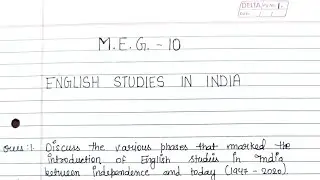 DELTA
M.E.G. - 10
ENGLISH STUDIES IN INDIA
Ques:1. Discuss the various phases that marked the
introduction of English studies in India
between independence and today (1947 - 2020).